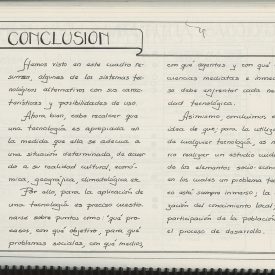 CONCLUSION
Hemos visto en este cuadro re-
sumen, algunos de los sistemas tec-
nológicos alternativos con sus carac-
terísticas y posibilidades de uso.
Ahora bien, cabe recalcar que
una tecnología es apropiada en
la medida que ella se adecua a
una situación determinada, de acuer-
do a su realidad cultural, econó-
mica, geográfica, climatológica etc.
Por ello, para la aplicación de
una tecnología es preciso cuestio-
narse sobre puntos como: "qué pro-
cesos, con qué objetivo, para qué
problemas sociales, con qué medios,
con qué agentes y con qué
cuencias mediatas e inme
se debe enfrentar cada
dad tecnológica.
Asimismo, concluimos
idea de que; para la utiliz
de cualquier tecnología, es
rio realizar un estudio cuida
de los elementos socio-
en los cuales un problema
co está siempre inmerso; la
zación del conocimiento local,
participación de la población
el proceso de desarrollo.